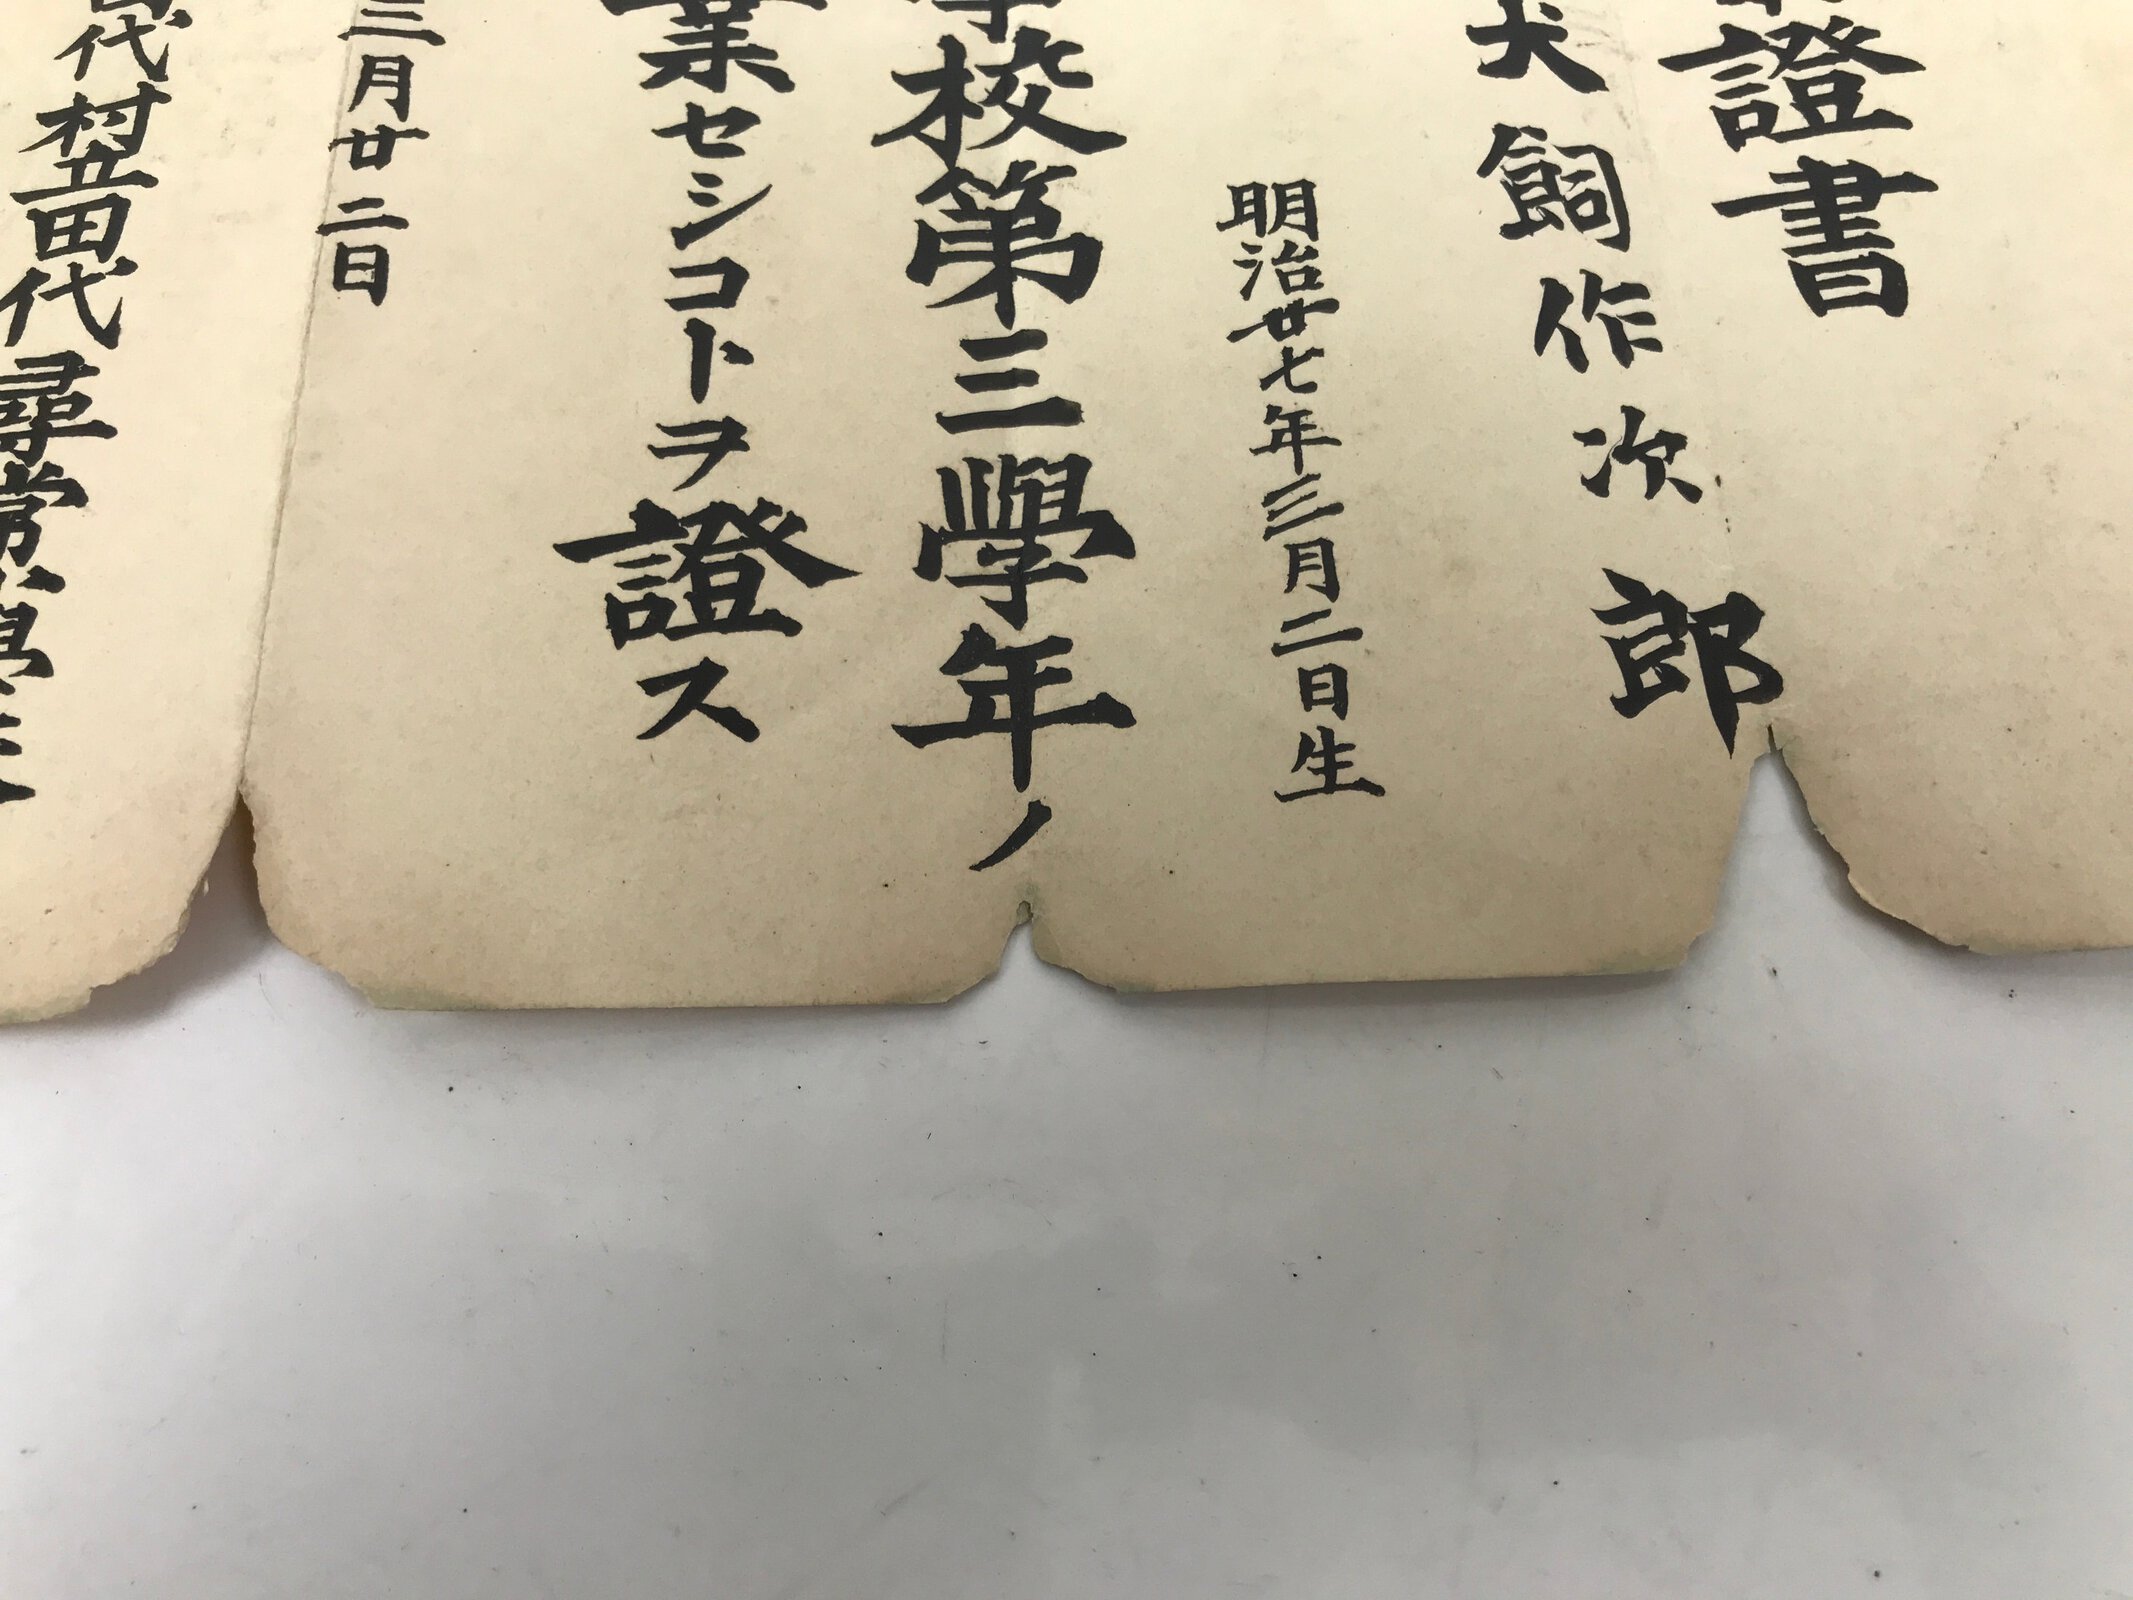 證書
犬飼作次郎
明治廿七年三月二日生
學校第三學年ノ
業セシコトヲ證ス
三月廿二日
代村立田代尋常